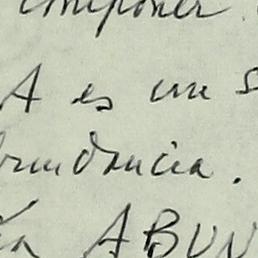 componer
A es un s
brundancia.
La ABUN